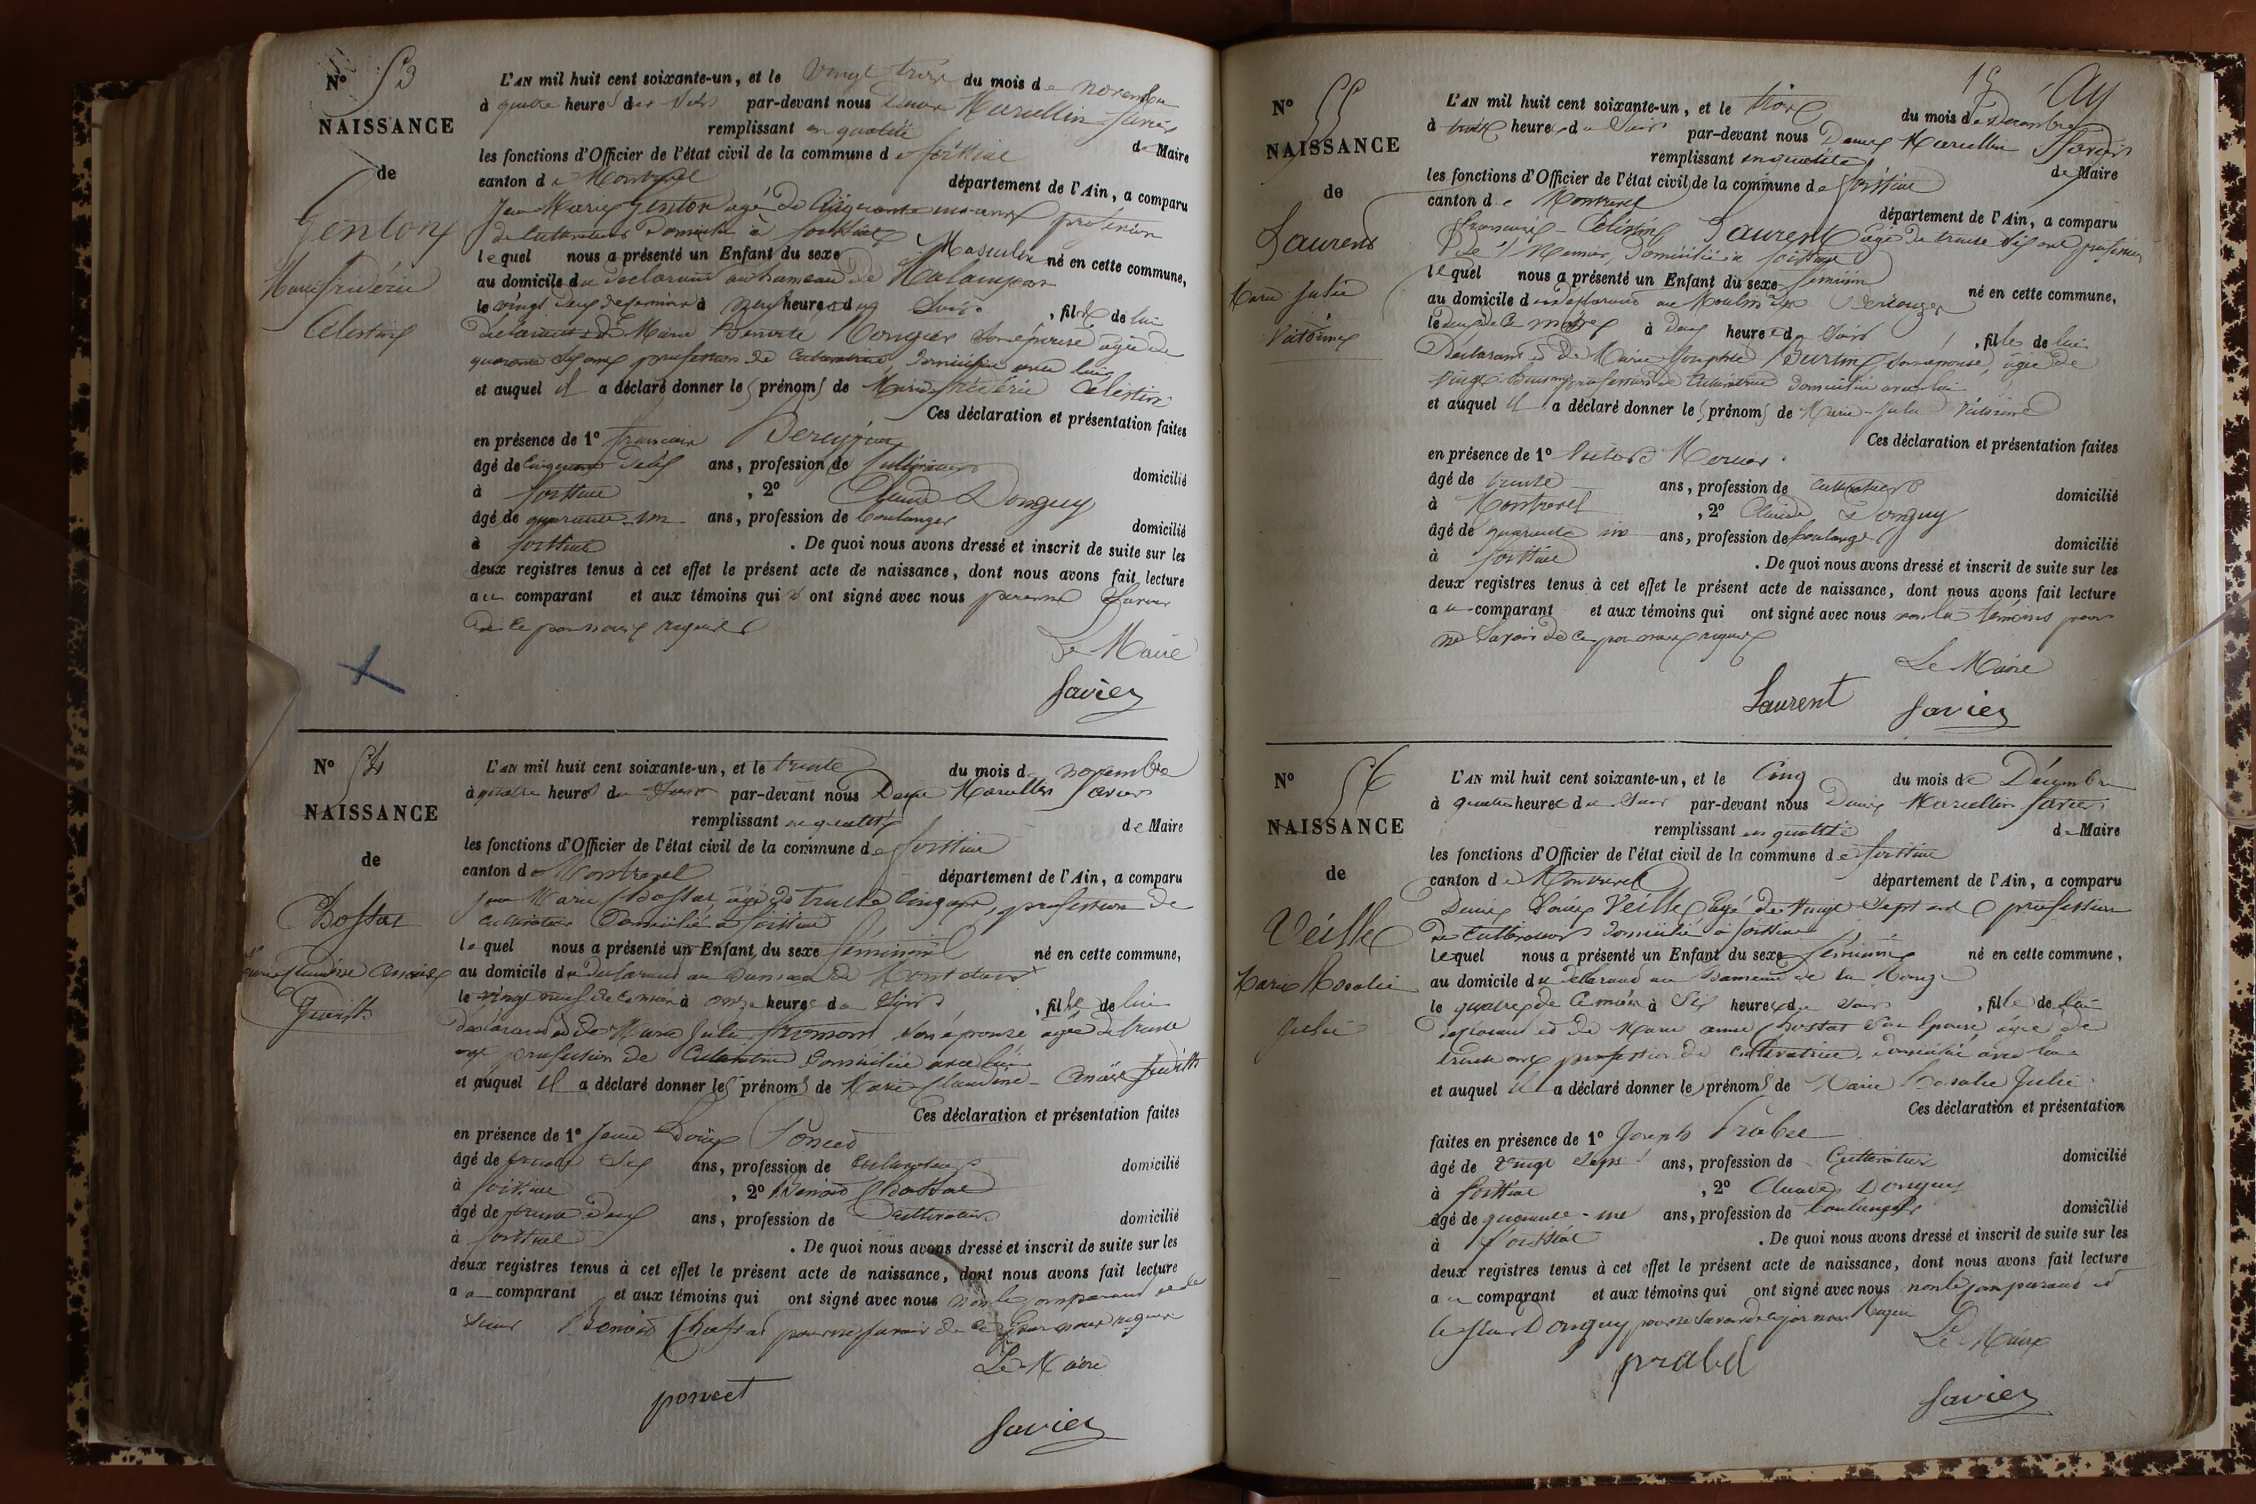 N° 53
NAISSANCE
de
Genton
Marie frédéric
Celestin
L'AN mil huit cent soixante-un, et le vingt trois du mois de novembre
à quatre heures du soir par-devant nous Marcellin Savier
remplissant en qualité de Maire
les fonctions d'Officier de l'état civil de la commune de foissiat
canton de Montrevel département de l'Ain, a comparu
Jean Marie Genton agé de Cinquante un ans profession
de Cultivateur domicilié à foissiat
lequel nous a présenté un Enfant du sexe Masculin né en cette commune,
au domicile du déclarant au hameau de
le vingt deux de ce mois à neuf heures du Soir, fils de lui
déclarant et de Marie son épouse agée de
quarante ans profession de Cultivatrice, domiciliée avec lui
et auquel il a déclaré donner les prénoms de Marie frédéric Celestin
Ces déclaration et présentation faites
en présence de 1° francois
âgé de Cinquante ans, profession de domicilié
à foissiat, 2° Claude Donguy
âgé de quarante un ans, profession de boulanger domicilié
à foissiat. De quoi nous avons dressé et inscrit de suite sur les
deux registres tenus à cet effet le présent acte de naissance, dont nous avons fait lecture
au comparant et aux témoins qui ont signé avec nous
de ce par nous requis
Le Maire
Savier
N° 54
NAISSANCE
de
Chossat
Marie Claudine
Judith
L'AN mil huit cent soixante-un, et le trente du mois de novembre
à quatre heures du Soir par-devant nous Denis Marcellin Savier
remplissant en qualité de Maire
les fonctions d'Officier de l'état civil de la commune de foissiat
canton de Montrevel département de l'Ain, a comparu
Jean Marie Chossat agé de trente Cinq ans, profession de
Cultivateur Domicilié à foissiat
lequel nous a présenté un Enfant du sexe féminin né en cette commune,
au domicile du déclarant au hameau de
le vingt neuf de ce mois à onze heures du Soir, fille de lui
déclarant et de Marie Julie fromont son épouse agée de trente
ans profession de Cultivatrice Domiciliée avec lui
et auquel il a déclaré donner les prénoms de Marie Claudine Judith
Ces déclaration et présentation faites
en présence de 1° Jean Louis Poncet
âgé de trente Six ans, profession de Cultivateur domicilié
à foissiat, 2° Benoit Chossat
âgé de trente deux ans, profession de Cultivateur domicilié
à foissiat. De quoi nous avons dressé et inscrit de suite sur les
deux registres tenus à cet effet le présent acte de naissance, dont nous avons fait lecture
au comparant et aux témoins qui ont signé avec nous non le comparant et le
sieur Benoit Chossat pour ne savoir de ce par nous requis
Le Maire
poncet
Savier
N° 55
NAISSANCE
de
Laurent
Marie Julie
Victorine
L'AN mil huit cent soixante-un, et le trois du mois de Décembre
à trois heures du Soir par-devant nous Denis Marcellin Savier
remplissant en qualité de Maire
les fonctions d'Officier de l'état civil de la commune de foissiat
canton de Montrevel département de l'Ain, a comparu
francois Célestin Laurent agé de trente Six ans profession
de Meunier, Domicilié à foissiat
lequel nous a présenté un Enfant du sexe féminin né en cette commune,
au domicile du déclarant au Moulin
le deux de ce mois à deux heures du Soir, fille de lui
Déclarant et de Marie Josephte son épouse, agée de
vingt ans profession de Cultivatrice domiciliée avec lui
et auquel il a déclaré donner les prénoms de Marie Julie Victorine
Ces déclaration et présentation faites
en présence de 1° Victor Mercier
âgé de trente ans, profession de Cultivateur domicilié
à Montrevel, 2° Claude Donguy
âgé de quarante un ans, profession de boulanger domicilié
à foissiat. De quoi nous avons dressé et inscrit de suite sur les
deux registres tenus à cet effet le présent acte de naissance, dont nous avons fait lecture
au comparant et aux témoins qui ont signé avec nous non les témoins pour
ne Savoir de ce par nous requis
Le Maire
Laurent Savier
N° 56
NAISSANCE
de
Veille
Marie Rosalie
Julie
L'AN mil huit cent soixante-un, et le Cinq du mois de Décembre
à quatre heures du Soir par-devant nous Denis Marcellin Savier
remplissant en qualité de Maire
les fonctions d'Officier de l'état civil de la commune de foissiat
canton de Montrevel département de l'Ain, a comparu
Denis Louis Veille agé de Vingt Sept ans profession
de Cultivateur domicilié à foissiat
lequel nous a présenté un Enfant du sexe féminin né en cette commune,
au domicile du déclarant au hameau de la
le quatre de ce mois à Six heures du Soir, fille de lui
déclarant et de Marie anne Chossat son épouse, agée de
trente ans profession de Cultivatrice domiciliée avec lui
et auquel il a déclaré donner les prénoms de Marie Rosalie Julie
Ces déclaration et présentation
faites en présence de 1° Joseph Prabel
âgé de vingt Sept ans, profession de Cultivateur domicilié
à foissiat, 2° Claude Donguy
âgé de quarante un ans, profession de boulanger domicilié
à foissiat. De quoi nous avons dressé et inscrit de suite sur les
deux registres tenus à cet effet le présent acte de naissance, dont nous avons fait lecture
au comparant et aux témoins qui ont signé avec nous non le comparant et
le sieur Donguy pour ne savoir de ce par nous requis
Le Maire
prabel
Savier